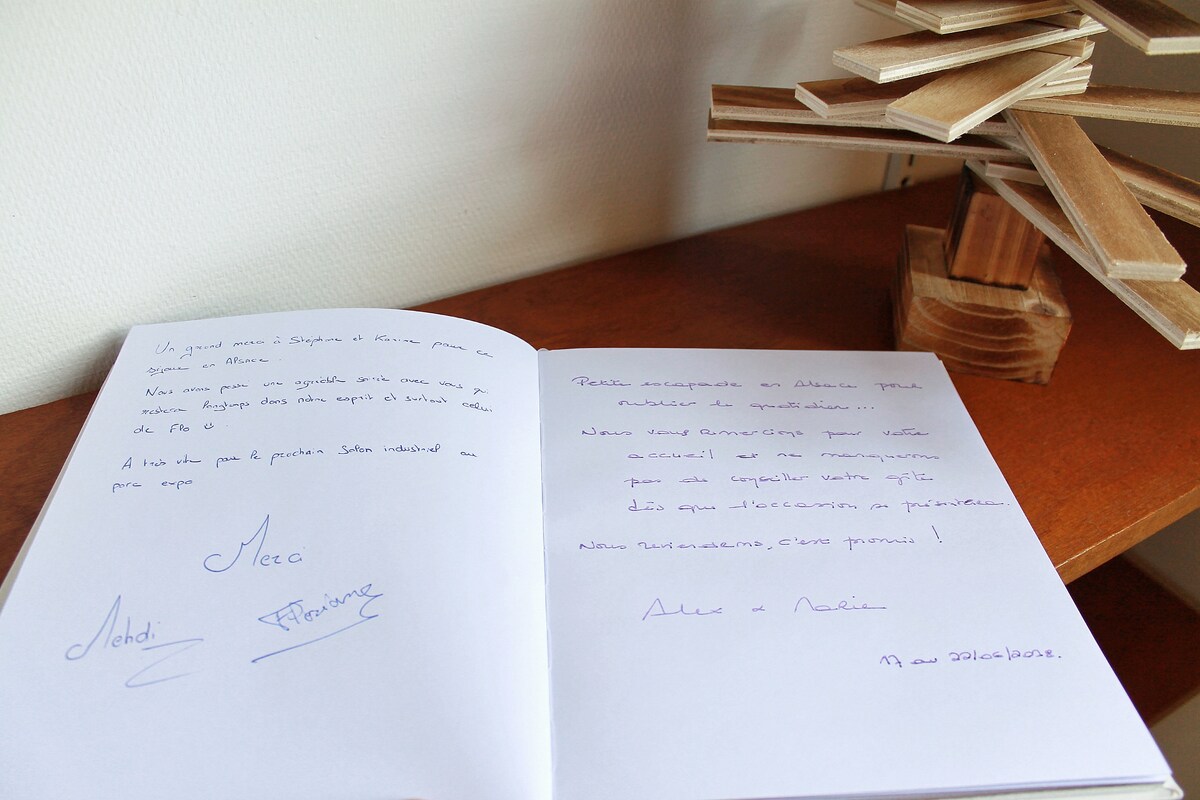 Un grand merci à Stéphane et Karine pour ce
séjour en Alsace.
Nous avons passé une agréable soirée avec vous qui
restera longtemps dans notre esprit et surtout celui
de Flo
A très vite pour le prochain Salon industriel au
parc expo
Merci
Mehdi
Floriane
Petite escapade en Alsace pour
oublier le quotidien...
Nous vous remercions pour votre
accueil et ne manquerons
pas de conseiller votre gîte
dès que l'occasion se présentera.
Nous reviendrons, c'est promis !
Alex & Marie
17 au 22/06/2018.